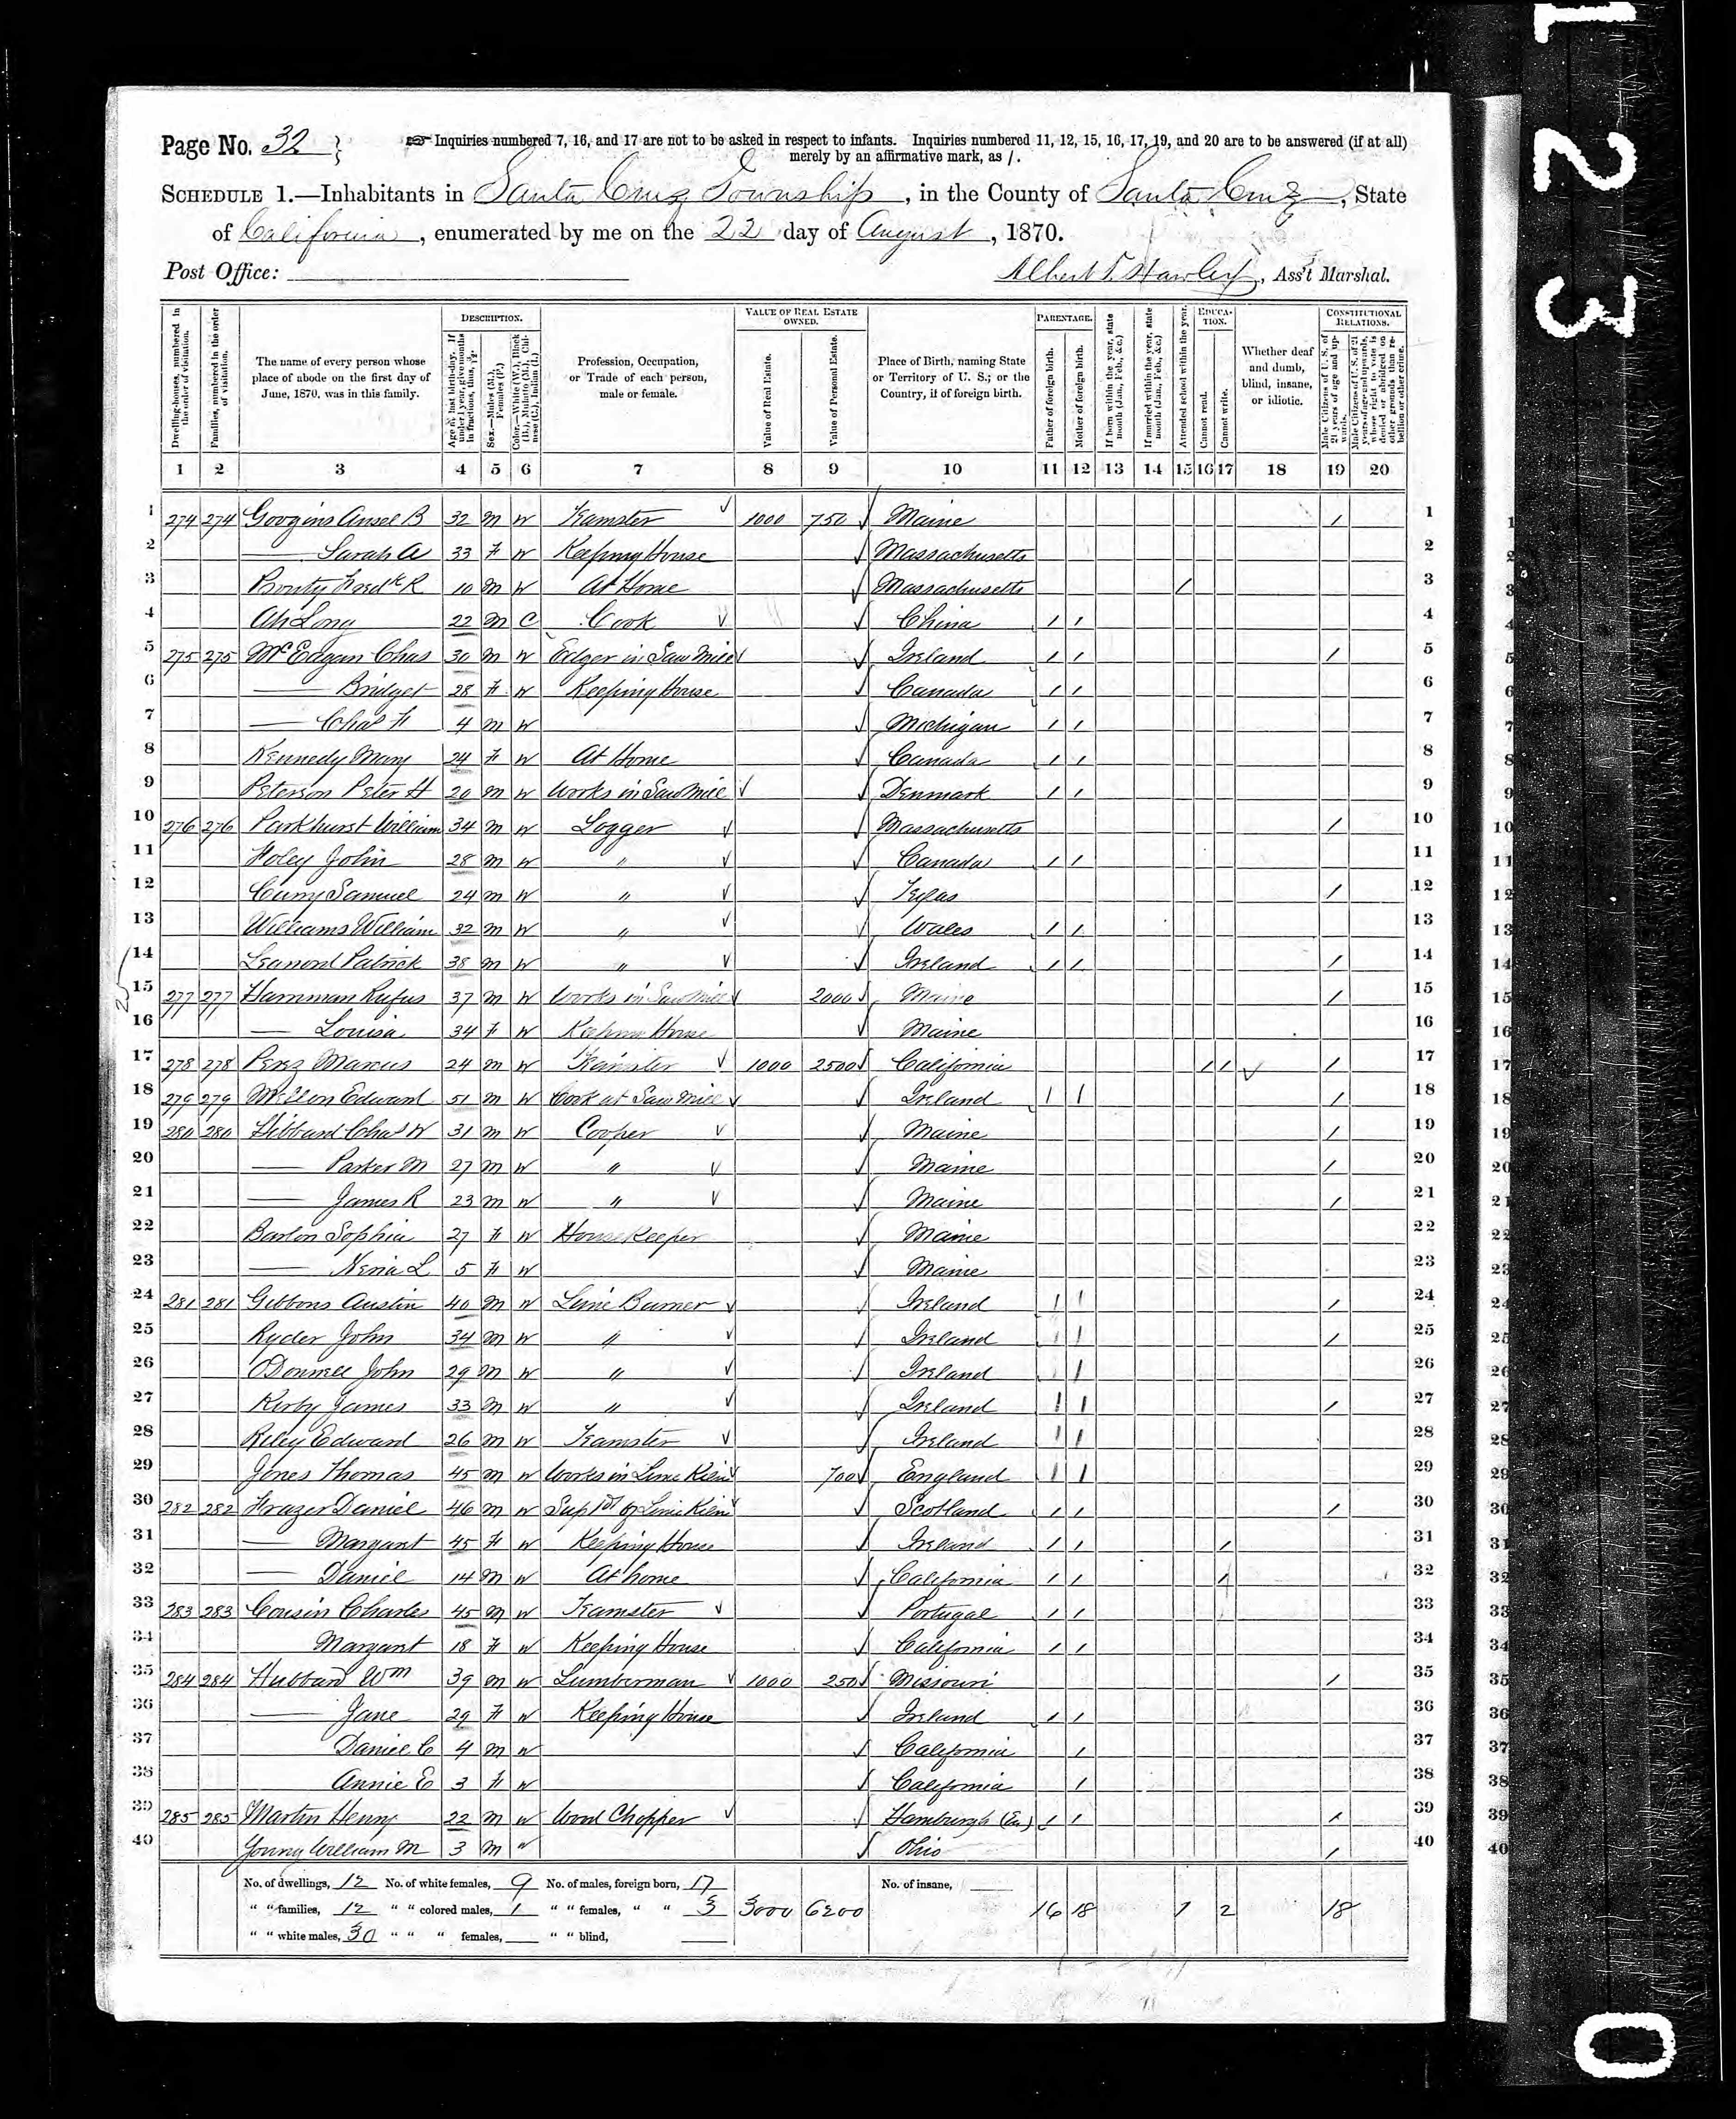 Page No. 32
☞ Inquiries numbered 7, 16, and 17 are not to be asked in respect to infants. Inquiries numbered 11, 12, 15, 16, 17, 19, and 20 are to be answered (if at all)
merely by an affirmative mark, as /.
SCHEDULE 1.—Inhabitants in Santa Cruz Township, in the County of Santa Cruz, State
of California, enumerated by me on the 22 day of August, 1870.
Post Office:
Albert T. Hawley, Ass't Marshal.
Dwelling-houses, numbered in the order of visitation.
Families, numbered in the order of visitation.
The name of every person whose place of abode on the first day of June, 1870, was in this family.
DESCRIPTION.
Age at last birth-day. If under 1 year, give months in fractions, thus, 3/12
Sex.—Males (M.), Females (F.)
Color.—White (W.), Black (B.), Mulatto (M.), Chinese (C.), Indian (I.)
Profession, Occupation, or Trade of each person, male or female.
VALUE OF REAL ESTATE OWNED.
Value of Real Estate.
Value of Personal Estate.
Place of Birth, naming State or Territory of U. S.; or the Country, if of foreign birth.
PARENTAGE.
Father of foreign birth.
Mother of foreign birth.
If born within the year, state month (Jan., Feb., &c.)
If married within the year, state month (Jan., Feb., &c.)
EDUCATION.
Attended school within the year.
Cannot read.
Cannot write.
Whether deaf and dumb, blind, insane, or idiotic.
CONSTITUTIONAL RELATIONS.
Male Citizens of U. S. of 21 years of age and upwards.
Male Citizens of U. S. of 21 years of age and upwards, whose right to vote is denied or abridged on other grounds than rebellion or other crime.
1 2 3 4 5 6 7 8 9 10 11 12 13 14 15 16 17 18 19 20
1 274 274 Googins Ansel B 32 M W Teamster 1000 750 Maine / 1
2 — Sarah A 33 F W Keeping House Massachusetts 2
3 Prouty Fredk R 10 M W At Home Massachusetts / 3
4 Ah Long 22 M C Cook China / / 4
5 275 275 McEagan Chas 30 M W Edger in Saw Mill Ireland / / / 5
6 — Bridget 28 F W Keeping House Canada / / 6
7 — Chas F 4 M W Michigan / / 7
8 Kennedy Mary 24 F W At Home Canada / / 8
9 Peterson Peter H 20 M W Works in Saw Mill Denmark / / 9
10 276 276 Parkhurst William 34 M W Logger Massachusetts / 10
11 Foley John 28 M W " Canada / / 11
12 Curry Samuel 24 M W " Texas / 12
13 Williams William 32 M W " Wales / / 13
14 Leanord Patrick 38 M W " Ireland / / / 14
15 277 277 Hamman Rufus 37 M W Works in Saw Mill 2000 Maine / 15
16 — Louisa 34 F W Keeping House Maine 16
17 278 278 Perez Marcus 24 M W Teamster 1000 2500 California / / / 17
18 279 279 Edward 51 M W Cook at Saw Mill Ireland / / / 18
19 280 280 Hibbard Chas W 31 M W Cooper Maine / 19
20 — Parker M 27 M W " Maine / 20
21 — James R 23 M W " Maine / 21
22 Barton Sophia 27 F W House Keeper Maine 22
23 — L 5 F W Maine 23
24 281 281 Gibbons Austin 40 M W Lime Burner Ireland / / / 24
25 Ryder John 34 M W " Ireland / / / 25
26 O'Donnell John 29 M W " Ireland / / 26
27 Kerby James 33 M W " Ireland / / / 27
28 Riley Edward 26 M W Teamster Ireland / / 28
29 Jones Thomas 45 M W Works in Lime Kiln 700 England / / 29
30 282 282 Frazer Daniel 46 M W Supdt of Lime Kiln Scotland / / / 30
31 — Margaret 45 F W Keeping House Ireland / / / 31
32 — Daniel 14 M W At home California / / / 32
33 283 283 Cousin Charles 45 M W Teamster Portugal / / 33
34 Margaret 18 F W Keeping House California / / 34
35 284 284 Hubbard Wm 39 M W Lumberman 1000 250 Missouri / 35
36 — Jane 29 F W Keeping House Ireland / / 36
37 Daniel C 4 M W California / 37
38 Annie E 3 F W California / 38
39 285 285 Martin Henry 22 M W Wood Chopper Hamburgh (Eu) / / / 39
40 Young William M 3 M " Ohio / 40
No. of dwellings, 12 No. of white females, 9 No. of males, foreign born, 17 No. of insane,
" " families, 12 " " colored males, 1 " " females, " " 3 3000 6200 16 18 1 2 18
" " white males, 30 " " " females, " " blind,
1 2 3 0